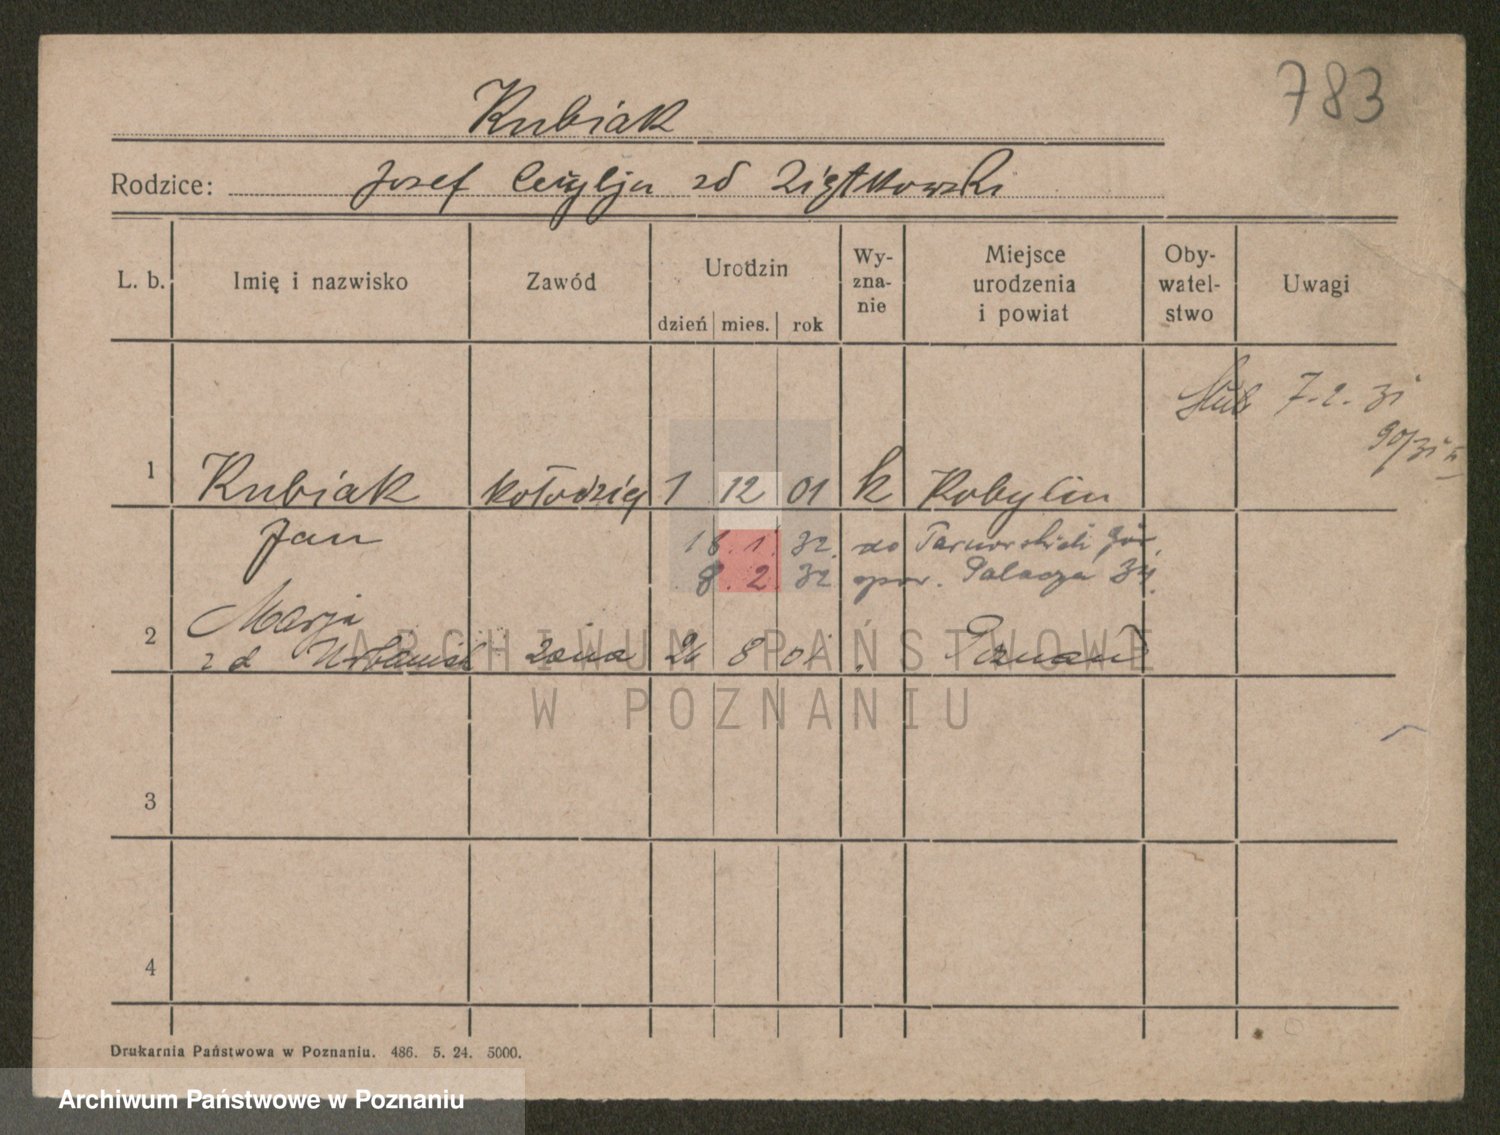 783
Kubiak
Rodzice: Josef Cecylja zd Ziętkowski
L. b. Imię i nazwisko Zawód Urodzin dzień mies. rok Wy-zna-nie Miejsce urodzenia i powiat Oby-watel-stwo Uwagi
Ślub 7.2.31
90/31
1 Kubiak kołodziej 1 12 01 k Kobylin
Jan 18. 1. 32. do Tarnowskich Gór.
8. 2. 32 Palacza 34.
2 Marja
zd Urbaniak żona 26 8 01 Poznań
ARCHIWUM PAŃSTWOWE
W POZNANIU
3
4
Drukarnia Państwowa w Poznaniu. 486. 5. 24. 5000.
Archiwum Państwowe w Poznaniu